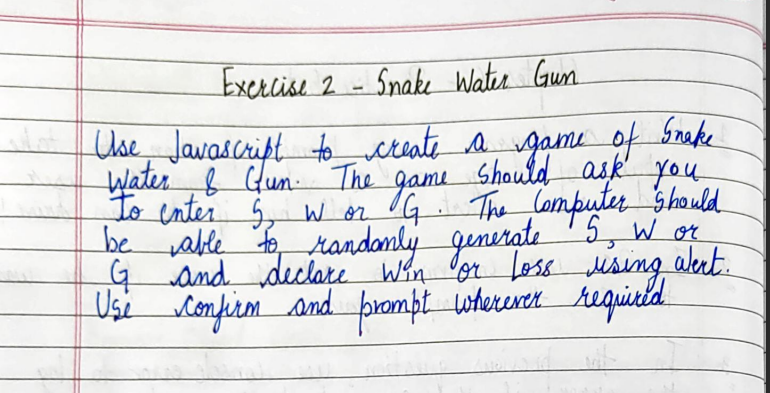 Exercise 2 - Snake Water Gun
Use Javascript to create a game of Snake
Water & Gun. The game should ask you
to enter S, W or G. The Computer should
be able to randomly generate S, W or
G and declare Win or Loss using alert.
Use confirm and prompt wherever required